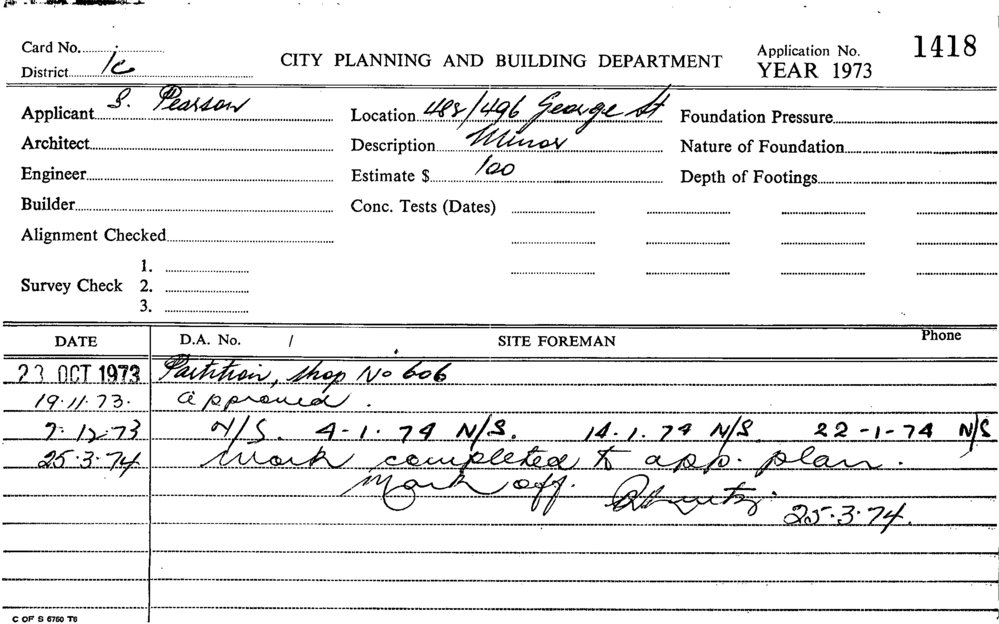 Card No.
District 1c
CITY PLANNING AND BUILDING DEPARTMENT
Application No. 1418
YEAR 1973
Applicant S. Pearson
Location 488/496 George St
Foundation Pressure
Architect
Description Minor
Nature of Foundation
Engineer
Estimate $ 100
Depth of Footings
Builder
Conc. Tests (Dates)
Alignment Checked
Survey Check
1.
2.
3.
DATE D.A. No. / SITE FOREMAN Phone
23 OCT 1973 Partition, shop No 606
19.11.73. approved.
7.12.73 N/S. 4-1.74 N/S. 14.1.74 N/S. 22-1-74 N/S
25.3.74 Work completed to app. plan.
Mark off.
25.3.74.
C OF S 6750 T6